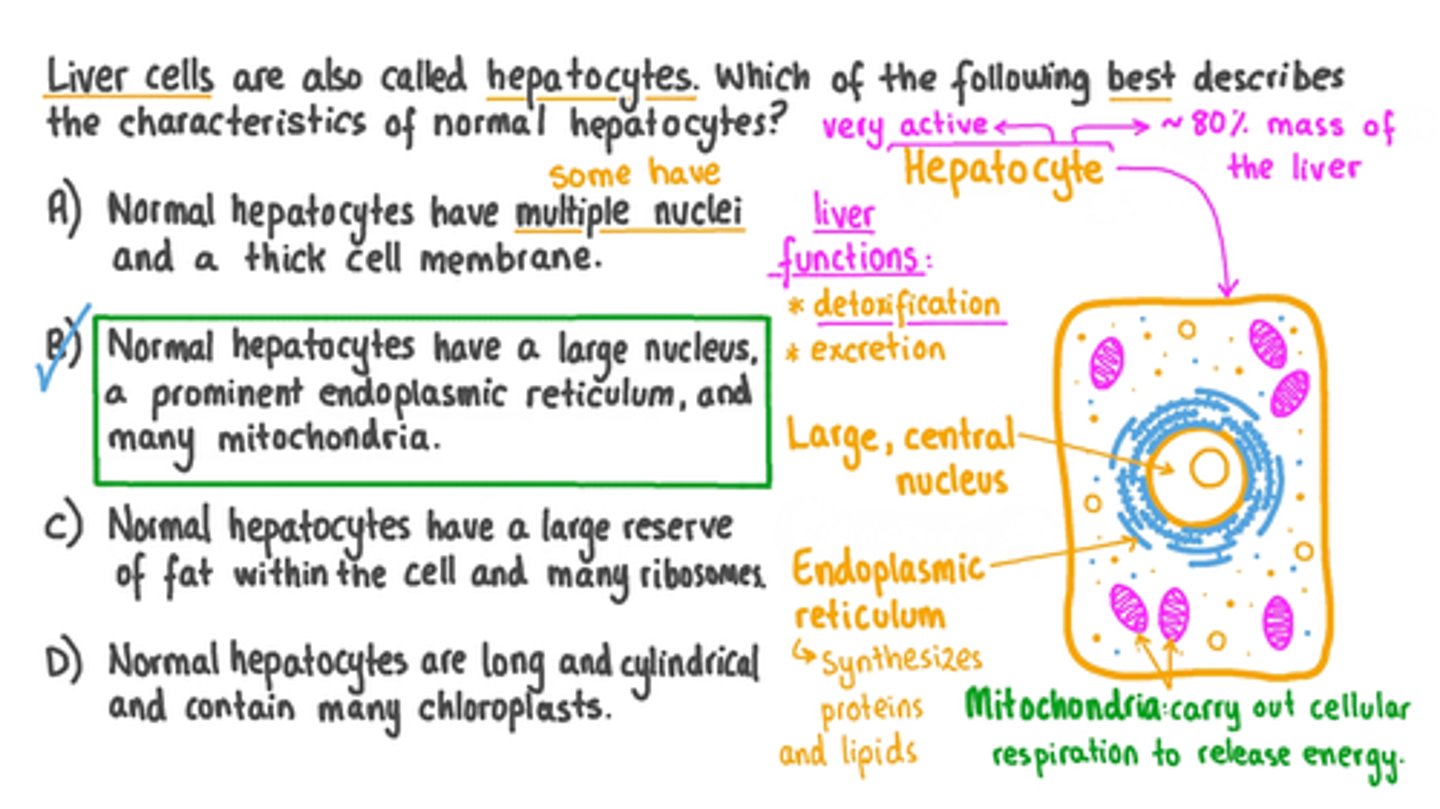 Liver cells are also called hepatocytes. Which of the following best describes
the characteristics of normal hepatocytes?
very active
~80% mass of
the liver
Hepatocyte
some have
A) Normal hepatocytes have multiple nuclei
and a thick cell membrane.
B) Normal hepatocytes have a large nucleus,
a prominent endoplasmic reticulum, and
many mitochondria.
C) Normal hepatocytes have a large reserve
of fat within the cell and many ribosomes.
D) Normal hepatocytes are long and cylindrical
and contain many chloroplasts.
liver
functions:
* detoxification
* excretion
Large, central
nucleus
Endoplasmic
reticulum
↳ synthesizes
proteins
and lipids
Mitochondria: carry out cellular
respiration to release energy.